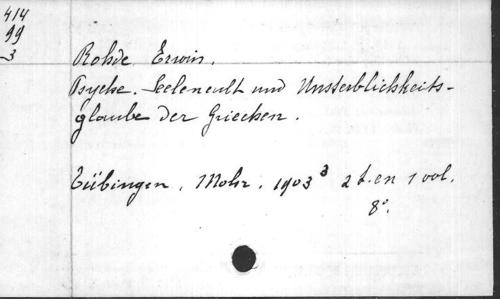 414
99
3
Rohde Erwin.
Psyche. Seelencult und Unsterblichkeits-
glaube der Griechen.
Tübingen, Mohr. 1903³ 2 t. en 1 vol.
8°.